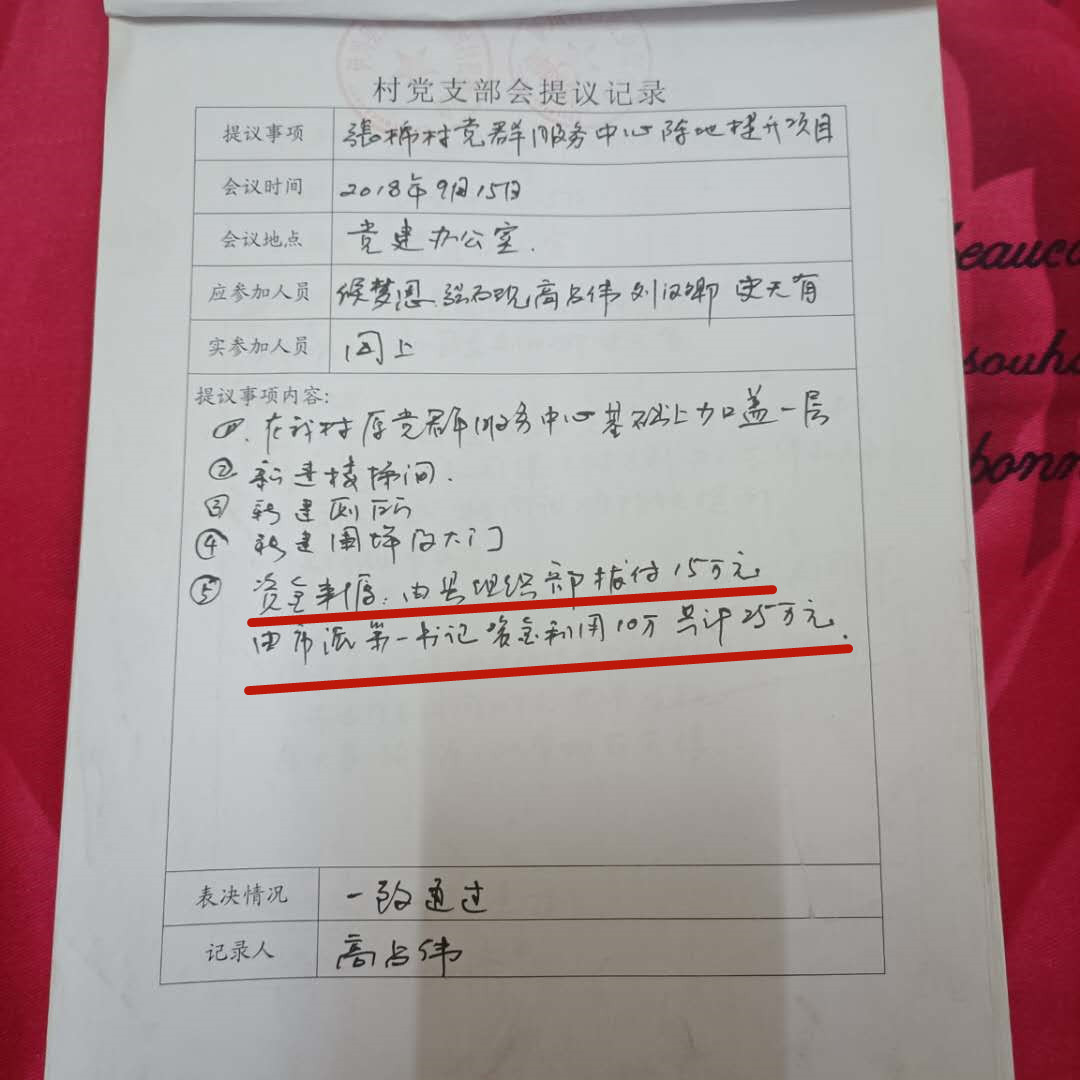 村党支部会提议记录
提议事项 張柿村党群服务中心阵地提升项目
会议时间 2018年9月15日
会议地点 党建办公室.
应参加人员 侯梦恩 高占伟 史天有
实参加人员 同上
提议事项内容:
①.在我村原党群服务中心基础上加盖一层
② 新建楼梯间.
③ 新建厕所
④ 新建围墙及大门
⑤ 资金来源:由县组织部拔付15万元
由市派第一书记资金利用10万 共计25万元.
表决情况 一致通过
记录人 高占伟
beauco
souha
bonn